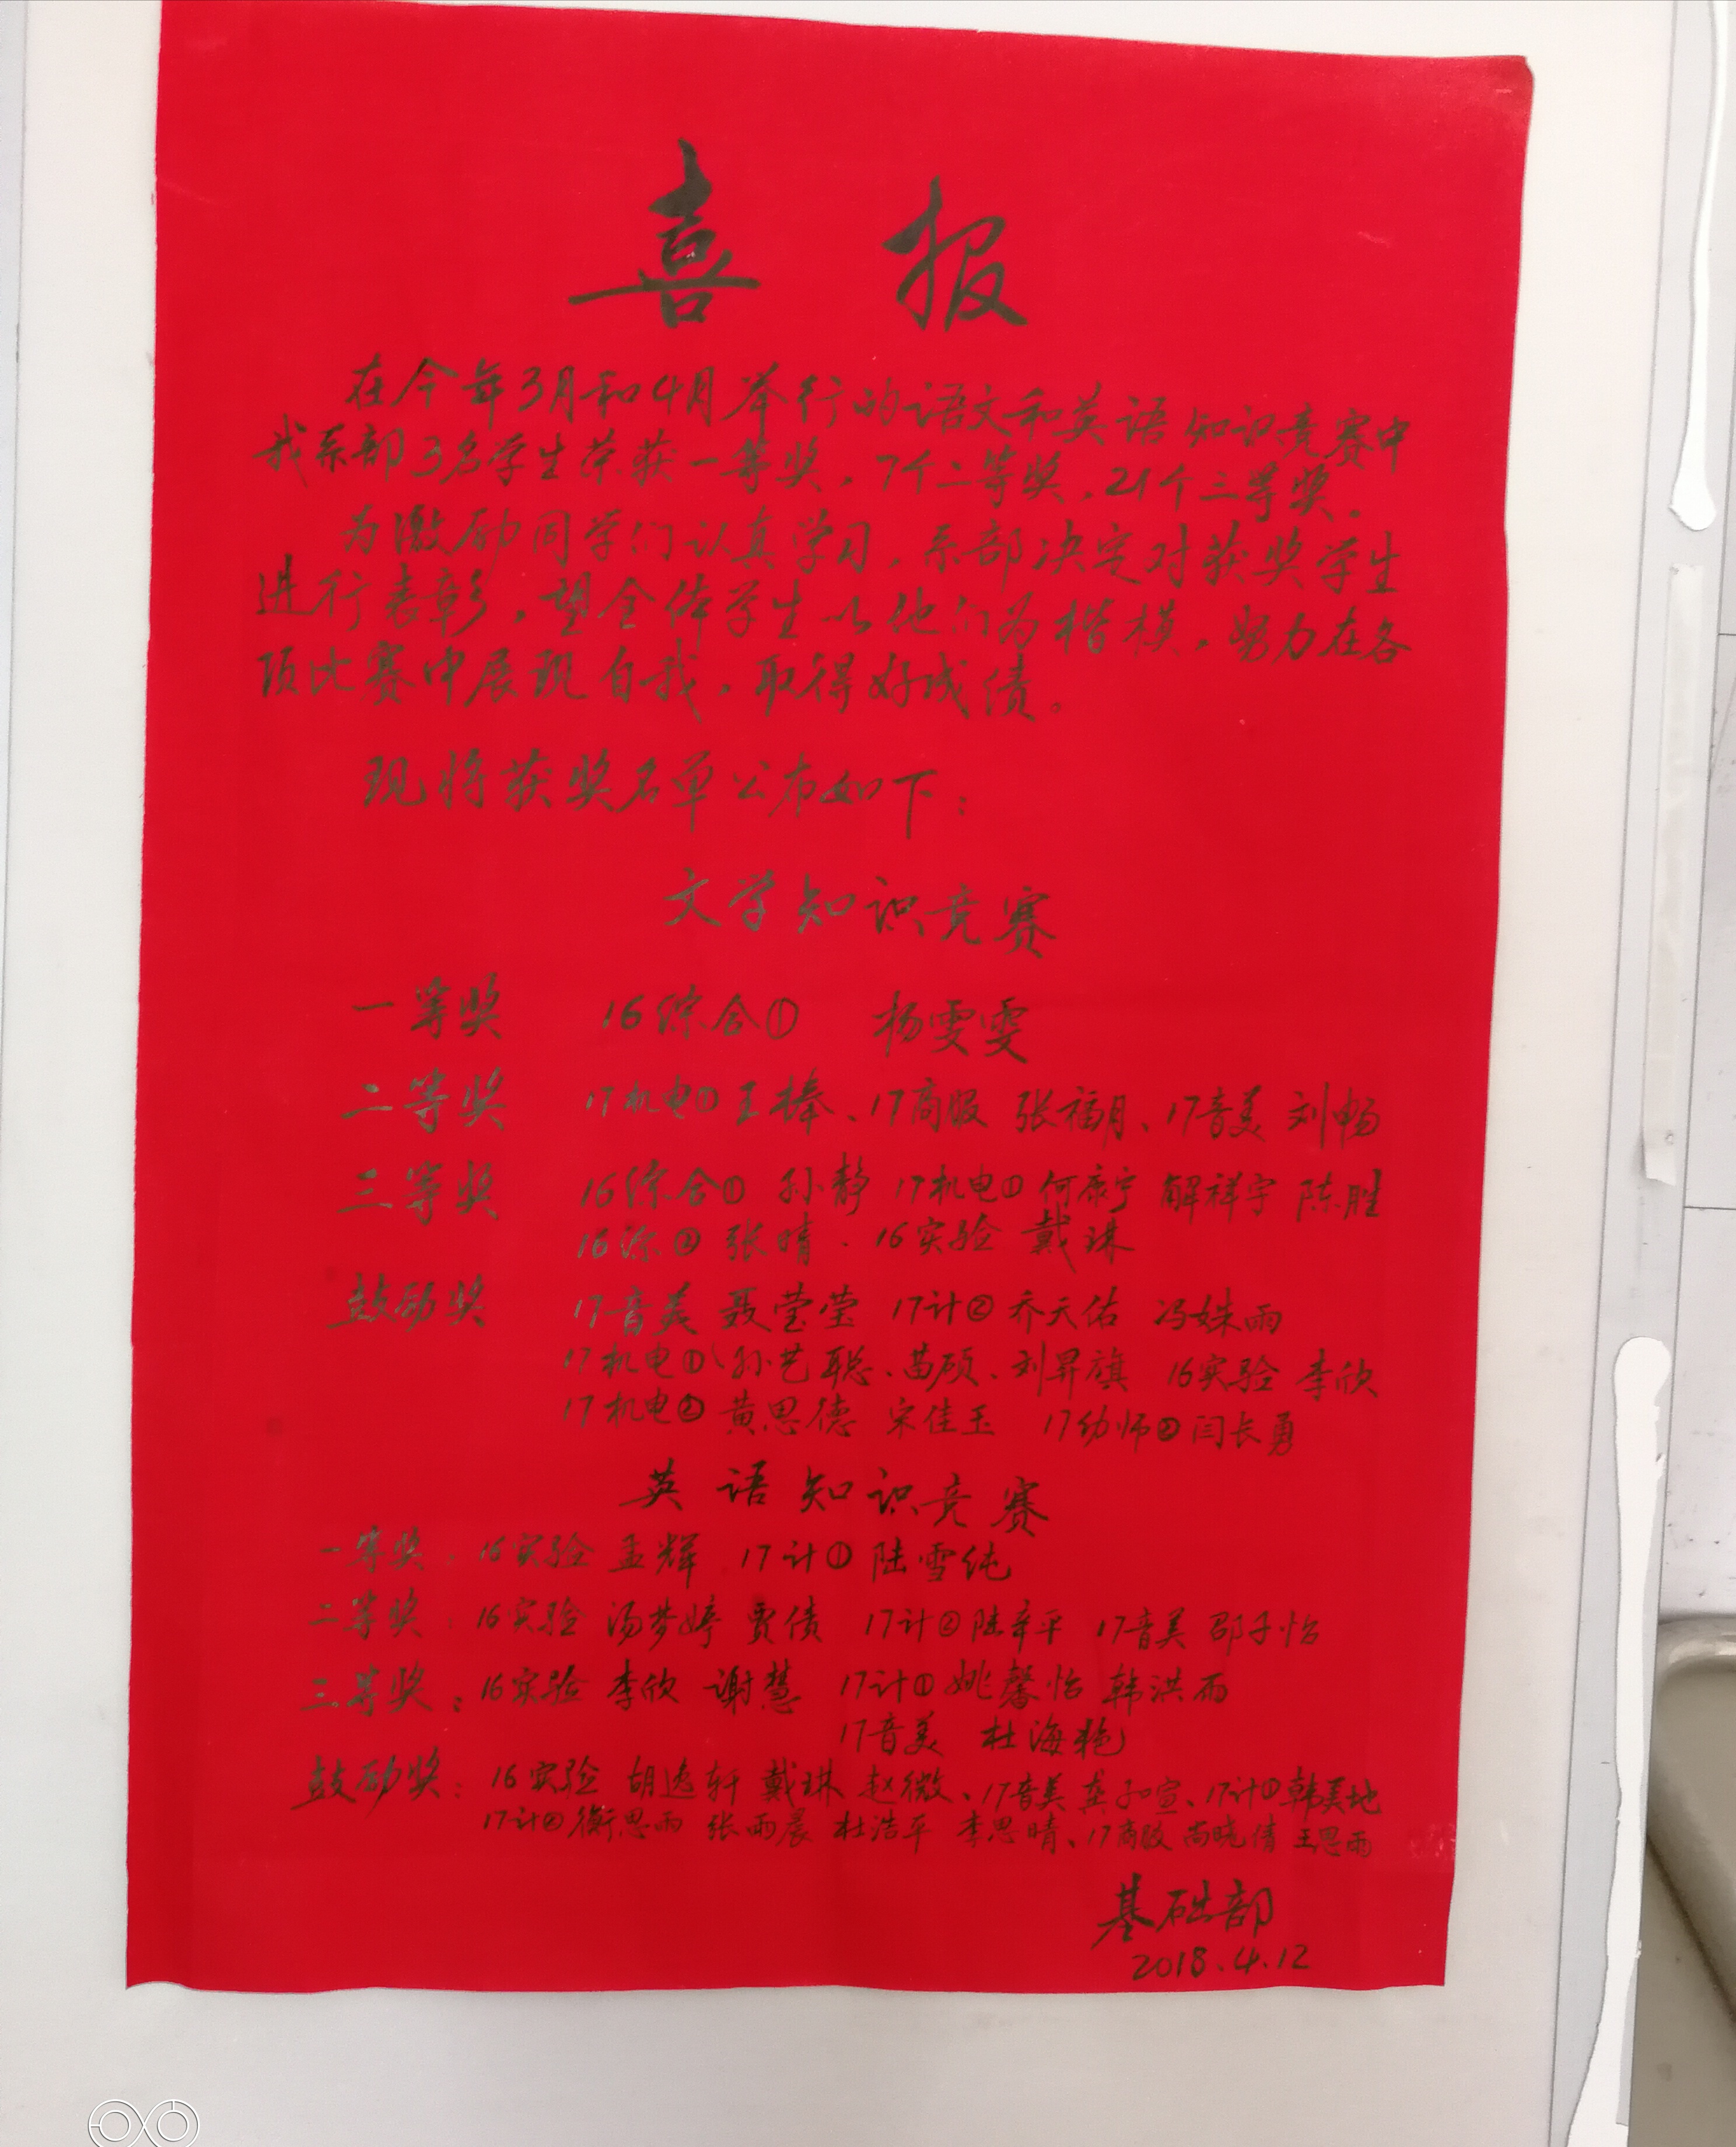 喜报
在今年3月和4月举行的语文和英语知识竞赛中
我系部3名学生荣获一等奖，7个二等奖，21个三等奖。
为激励同学们认真学习，系部决定对获奖学生
进行表彰，望全体学生以他们为楷模，努力在各
项比赛中展现自我，取得好成绩。
现将获奖名单公布如下：
文学知识竞赛
一等奖 16综合① 杨雯雯
二等奖 17机电①王棒、17商服 张福月、17音美 刘畅
三等奖 16综合① 孙静 17机电① 何康宁 解祥宇 陈胜
16综② 张晴. 16实验 戴琳
鼓励奖 17音美 聂莹莹 17计② 乔天佑 冯姝雨
17机电①、孙艺聪、苗硕、刘昇旗 16实验 李欣
17机电② 黄思德 宋佳玉 17幼师② 闫长勇
英语知识竞赛
一等奖：16实验 孟辉 17计① 陆雪纯
二等奖：16实验 汤梦婷 贾倩 17计② 陆辛平 17音美 邵子怡
三等奖：16实验 李欣 谢慧 17计① 姚馨怡 韩洪雨
17音美 杜海艳
鼓励奖：16实验 胡逸轩 戴琳 赵微、17音美 龚和宣、17计① 韩美地
17计② 衡思雨 张雨晨 杜浩平 李思晴、17商服 尚晓倩 王思雨
基础部
2018.4.12